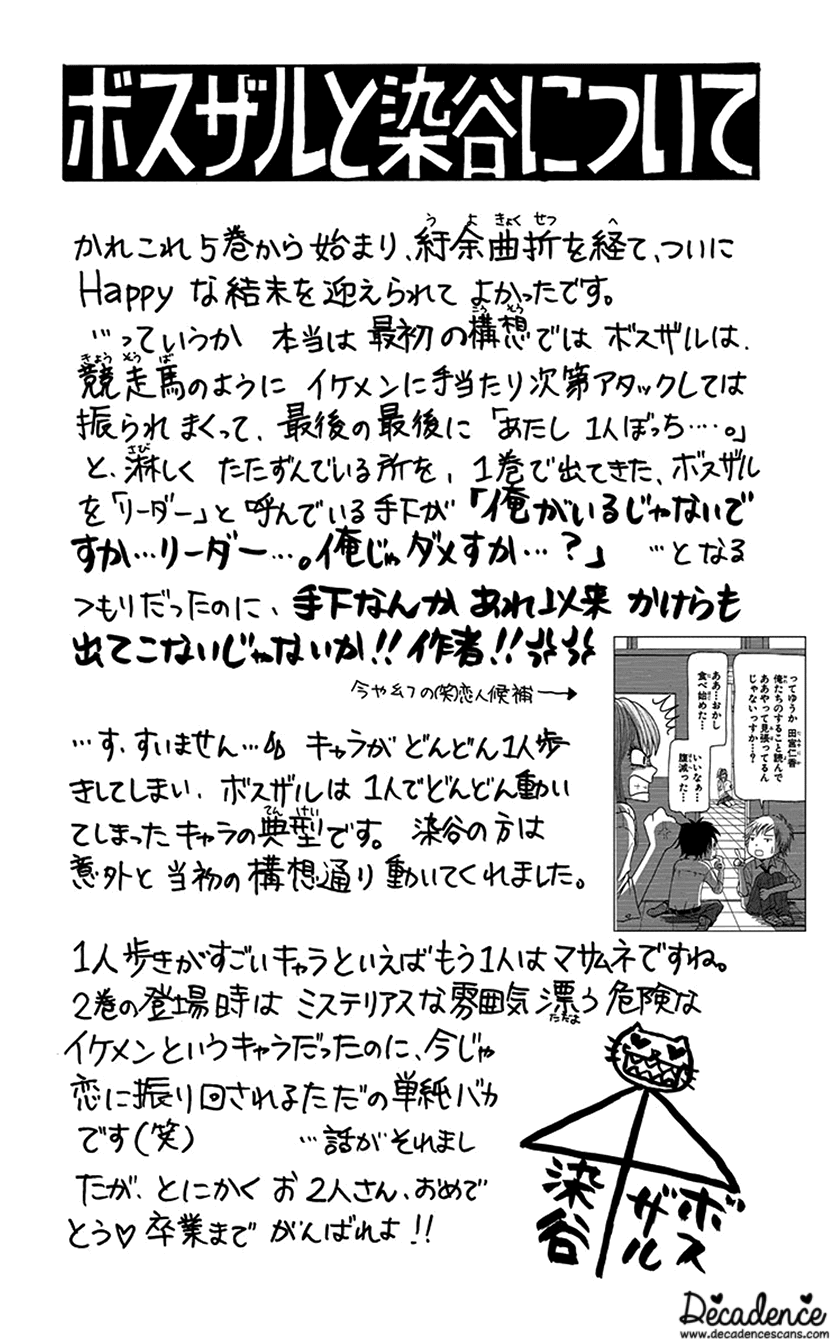 ボスザルと染谷について
かれこれ5巻から始まり、紆余曲折を経て、ついに
うよきょくせつ
へ
Happyな結末を迎えられてよかったです。
…っていうか 本当は最初の構想ではボスザルは、
こうそう
競走馬のようにイケメンに手当たり次第アタックしては
きょうそうば
振られまくって、最後の最後に「あたし1人ぼっち…。」
と、淋しくたたずんでいる所を、1巻で出てきた、ボスザル
さび
を「リーダー」と呼んでいる手下が「俺がいるじゃないで
すか…リーダー…。俺じゃダメすか…?」 …となる
つもりだったのに、手下なんかあれ以来かけらも
出てこないじゃないか!!作者!!
今や幻の(笑)恋人候補→
ってゆうか 田宮仁香
俺たちのすること読んで
ああやって見張ってるん
じゃないっすか…?
ああ…おかし
食べ始めた…
いいなぁ…
腹減った…
…す、すいません… キャラがどんどん1人歩
きしてしまい、ボスザルは1人でどんどん動い
てしまったキャラの典型です。 染谷の方は
てんけい
意外と当初の構想通り動いてくれました。
1人歩きがすごいキャラといえばもう1人はマサムネですね。
2巻の登場時はミステリアスな雰囲気漂う危険な
ただよ
イケメンというキャラだったのに、今じゃ
恋に振り回されるただの単純バカ
です(笑) …話がそれまし
たが、とにかくお2人さん、おめで
とう♡卒業までがんばれよ!!
染谷
ボスザル
Decadence
www.decadencescans.com